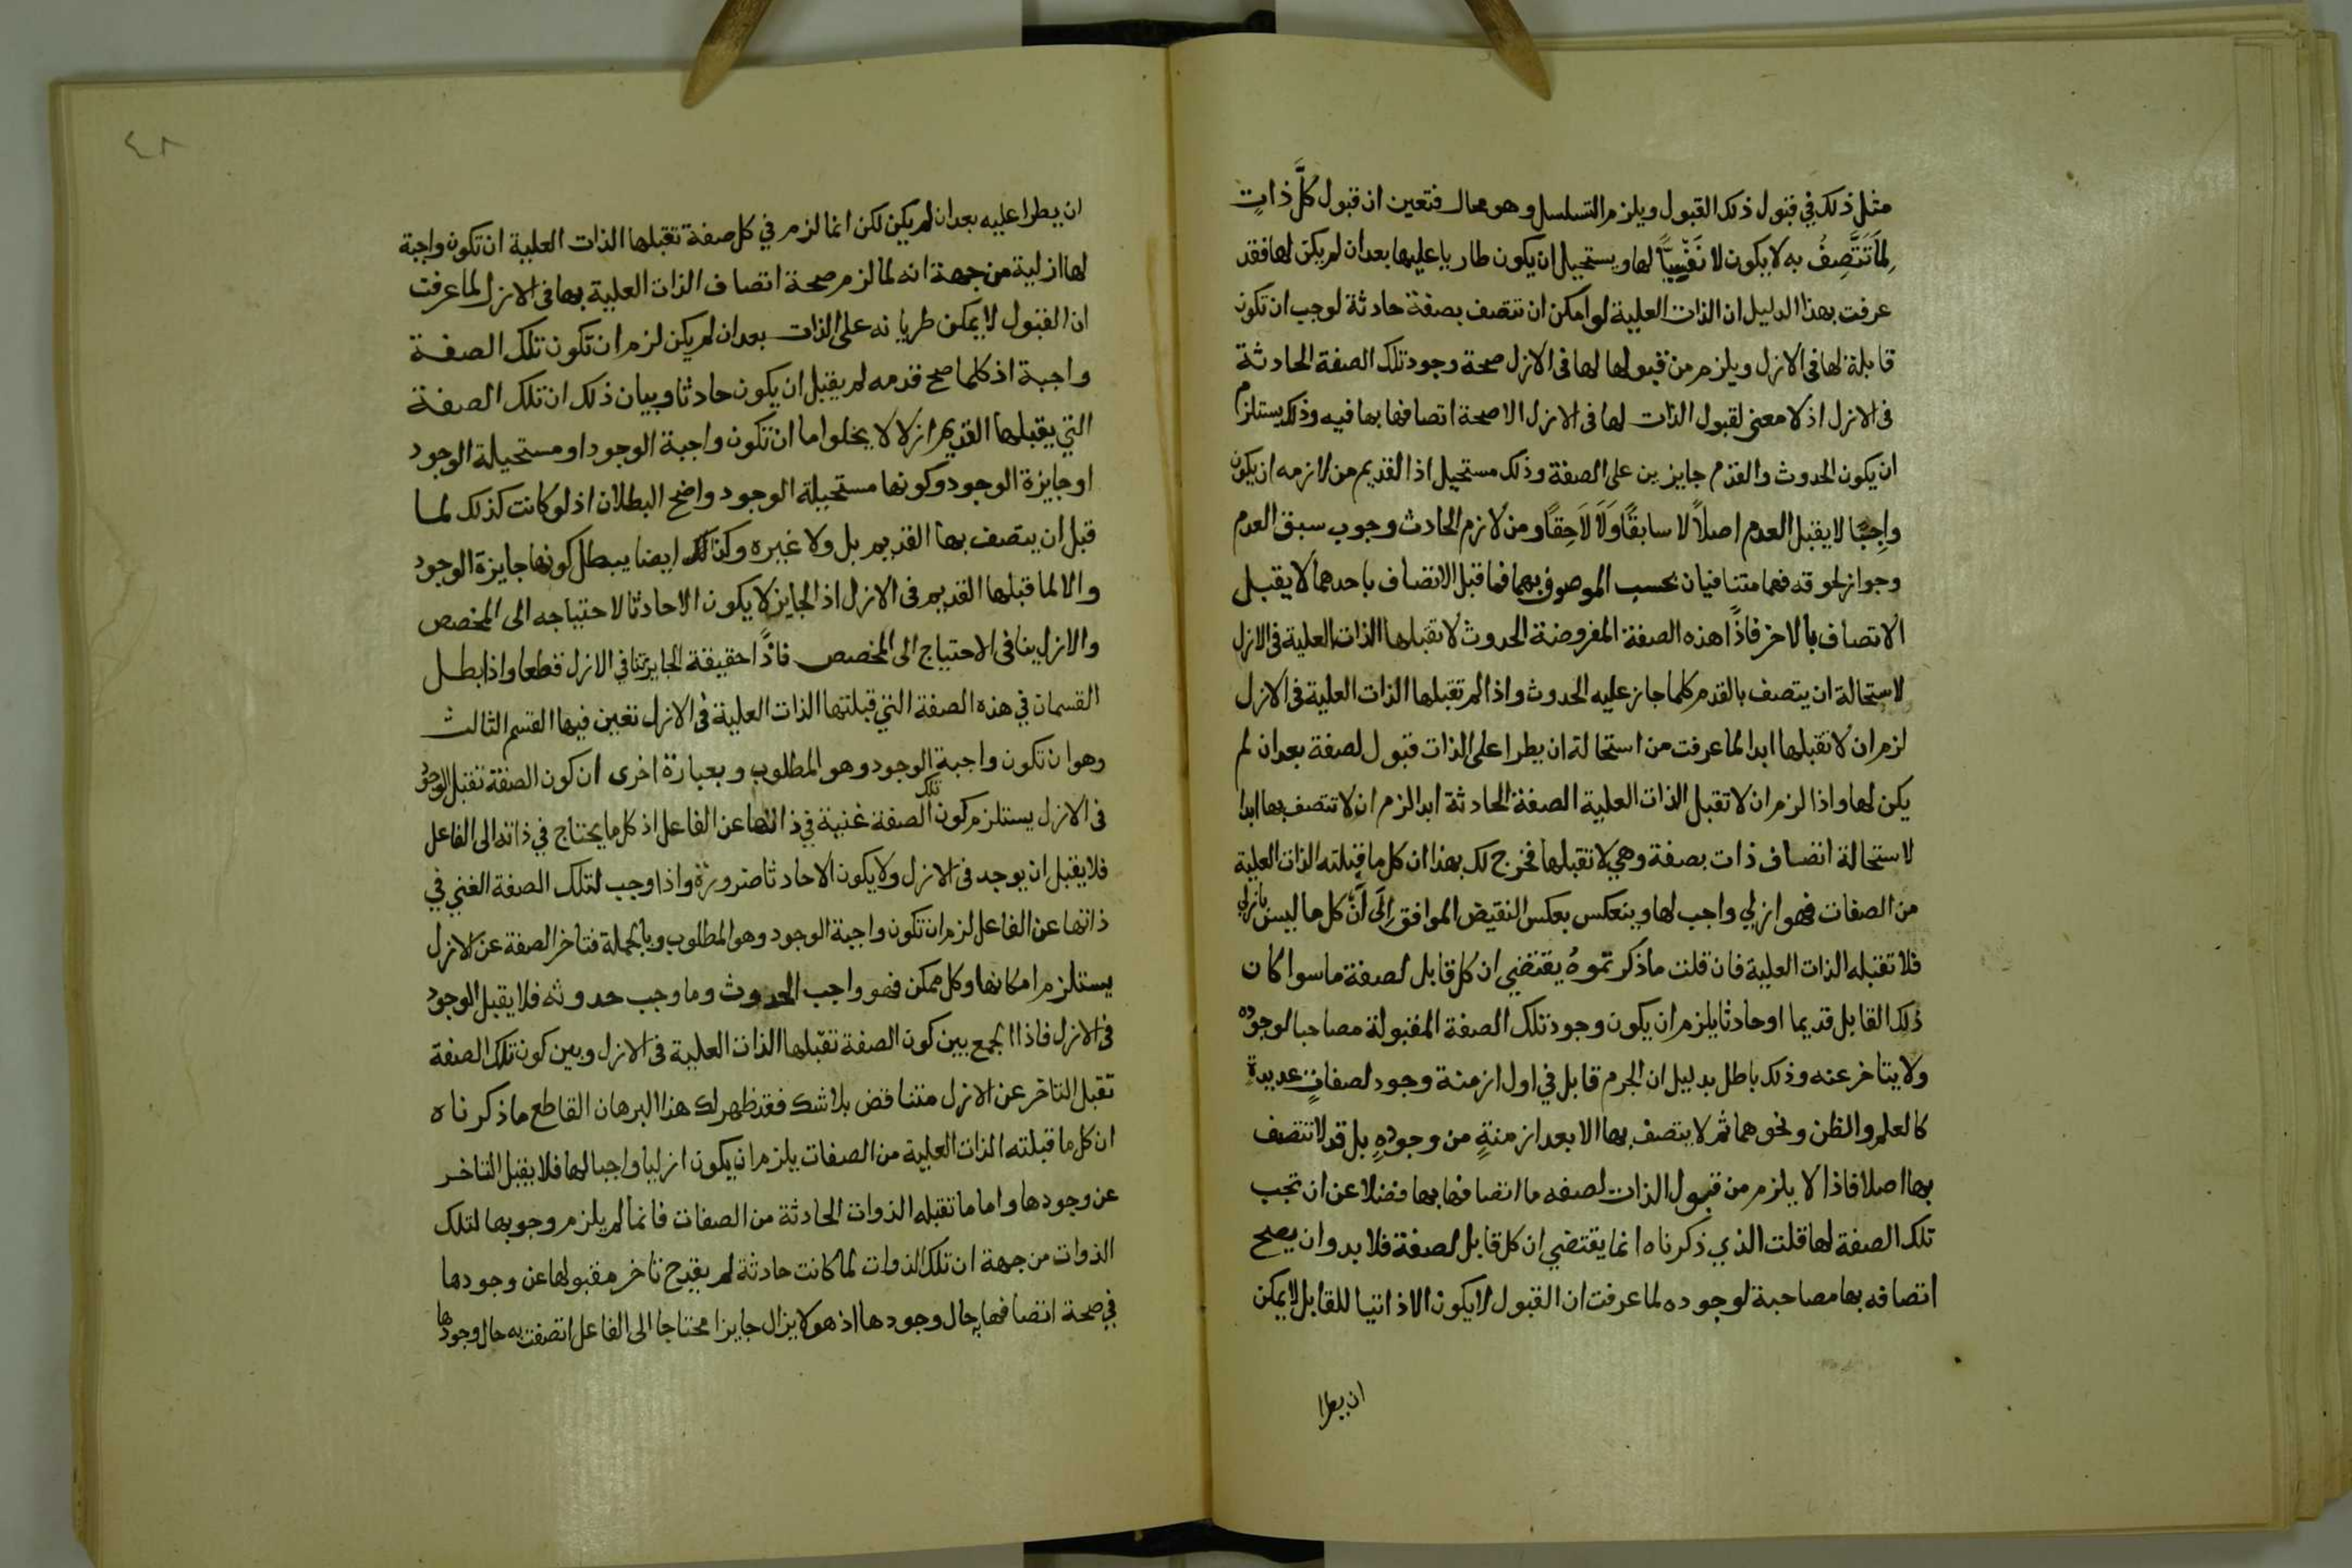 مثل ذلك في قبول ذلك القبول ويلزم التسلسل وهو محال فتعين ان قبول كلَّ ذاتٍ
لِمَا تَتَّصِفُ به لا يكون الا نَفْسِيًّا لها ويستحيل ان يكون طاريا عليها بعد ان لم يكن لها فقد
عرفت بهذا الدليل ان الذات العلية لو امكن ان تتصف بصفة حادثة لوجب ان تكون
قابلة لها في الازل ويلزم من قبولها لها في الازل صحة وجود تلك الصفة الحادثة
في الازل اذ لا معنى لقبول الذات لها في الازل الا صحة اتصافها بها فيه وذلك يستلزم
ان يكون الحدوث والقدم جايزين على الصفة وذلك مستحيل اذ القديم من لازمه ان يكون
واجِبًا لا يقبل العدم اصلاً لا سابقًا وَلَا لَاحِقًا ومن لازم الحادث وجوب سبق العدم
وجواز لحوقه فهما متنافيان بحسب الموصوف بهما فما قبل الاتصاف باحدهما لا يقبل
الاتصاف بالاخر فاذًا هذه الصفة المفروضة الحدوث لا تقبلها الذات العلية في الازل
لاستحالة ان يتصف بالقدم كلما جاز عليه الحدوث واذا لم تقبلها الذات العلية في الازل
لزم ان لا تقبلها ابدا لما عرفت من استحالة ان يطرا على الذات قبول لصفة بعد ان لم
يكن لها واذا لزم ان لا تقبل الذات العلية الصفة الحادثة ابدا لزم ان لا تتصف بها ابدا
لاستحالة اتصاف ذات بصفة وهي لا تقبلها فخرج لك بهذا ان كل ما قبلته الذات العلية
من الصفات فهو ازلي واجب لها وينعكس بعكس النقيض الموافق اِلَى اَنَّ كل ما ليس بازلي
فلا تقبله الذات العلية فان قلت ما ذكرتموهُ يقتضي ان كل قابل لصفة ما سوا كان
ذلك القابل قديما او حادثا يلزم ان يكون وجود تلك الصفة المقبولة مصاحبا لوجوده
ولا يتاخر عنه وذلك باطل بدليل ان الجرم قابل في اول ازمنة وجوده لصفاتٍ عديدة
كالعلم والظن ونحوهما ثم لا يتصف بها الا بعد ازمنةٍ من وجودِهِ بل قد لا تتصف
بها اصلا فاذا لا يلزم من قبول الذات لصفه ما اتصافها بها فضلا عن ان تجب
تلك الصفة لها قلت الذي ذكرناه انما يقتضي ان كل قابل لصفة فلا بد وان يصح
اتصافه بها مصاحبة لوجوده لما عرفت ان القبول لا يكون الا ذاتيا للقابل لا يمكن
ان يطرا
٤٨
ان يطرا عليه بعد ان لم يكن لكن انما لزم في كل صفة تقبلها الذات العلية ان تكون واجبة
لها ازلية من جهة انه لما لزم صحة اتصاف الذات العلية بها في الازل لما عرفت
ان القبول لا يمكن طريانه على الذات بعد ان لم يكن لزم ان تكون تلك الصفة
واجبة اذ كلما صح قدمه لم يقبل ان يكون حادثا وبيان ذلك ان تلك الصفة
التي يقبلها القديم ازلا لا يخلوا اما ان تكون واجبة الوجود او مستحيلة الوجود
او جايزة الوجود وكونها مستحيلة الوجود واضح البطلان اذ لو كانت كذلك لما
قبل ان يتصف بها القديم بل ولا غيره وكذلك ايضا يبطل كونها جايزة الوجود
والا لما قبلها القديم في الازل اذ الجايز لا يكون الا حادثا لاحتياجه الى المخصص
والازل ينافي الاحتياج الى المخصص فاذًا حقيقة الجايز تنافي الازل قطعا واذا بطل
القسمان في هذه الصفة التي قبلتها الذات العلية في الازل تعين فيها القسم الثالث
وهو ان تكون واجبة الوجود وهو المطلوب وبعبارة اخرى ان كون الصفة تقبل الوجود
في الازل يستلزم كون تلك الصفة غنية في ذاتها عن الفاعل اذ كل ما يحتاج في ذاته الى الفاعل
فلا يقبل ان يوجد في الازل ولا يكون الا حادثا ضرورة واذا وجب لتلك الصفة الغني في
ذاتها عن الفاعل لزم ان تكون واجبة الوجود وهو المطلوب وبالجملة فتاخر الصفة عن الازل
يستلزم امكانها وكل ممكن فهو واجب الحدوث وما وجب حدوثه فلا يقبل الوجود
في الازل فاذا الجمع بين كون الصفة تقبلها الذات العلية في الازل وبين كون تلك الصفة
تقبل التاخر عن الازل متناقض بلا شك فقد ظهر لك هذا البرهان القاطع ما ذكرناه
ان كل ما قبلته الذات العلية من الصفات يلزم ان يكون ازليا واجبا لها فلا يقبل التاخر
عن وجودها واما ما تقبله الذوات الحادثة من الصفات فانما لم يلزم وجوبها لتلك
الذوات من جهة ان تلك الذوات لما كانت حادثة لم يقدح تاخر مقبولها عن وجودها
في صحة اتصافها به حال وجودها اذ هو لا يزال جايزا محتاجا الى الفاعل اتصفت به حال وجودها